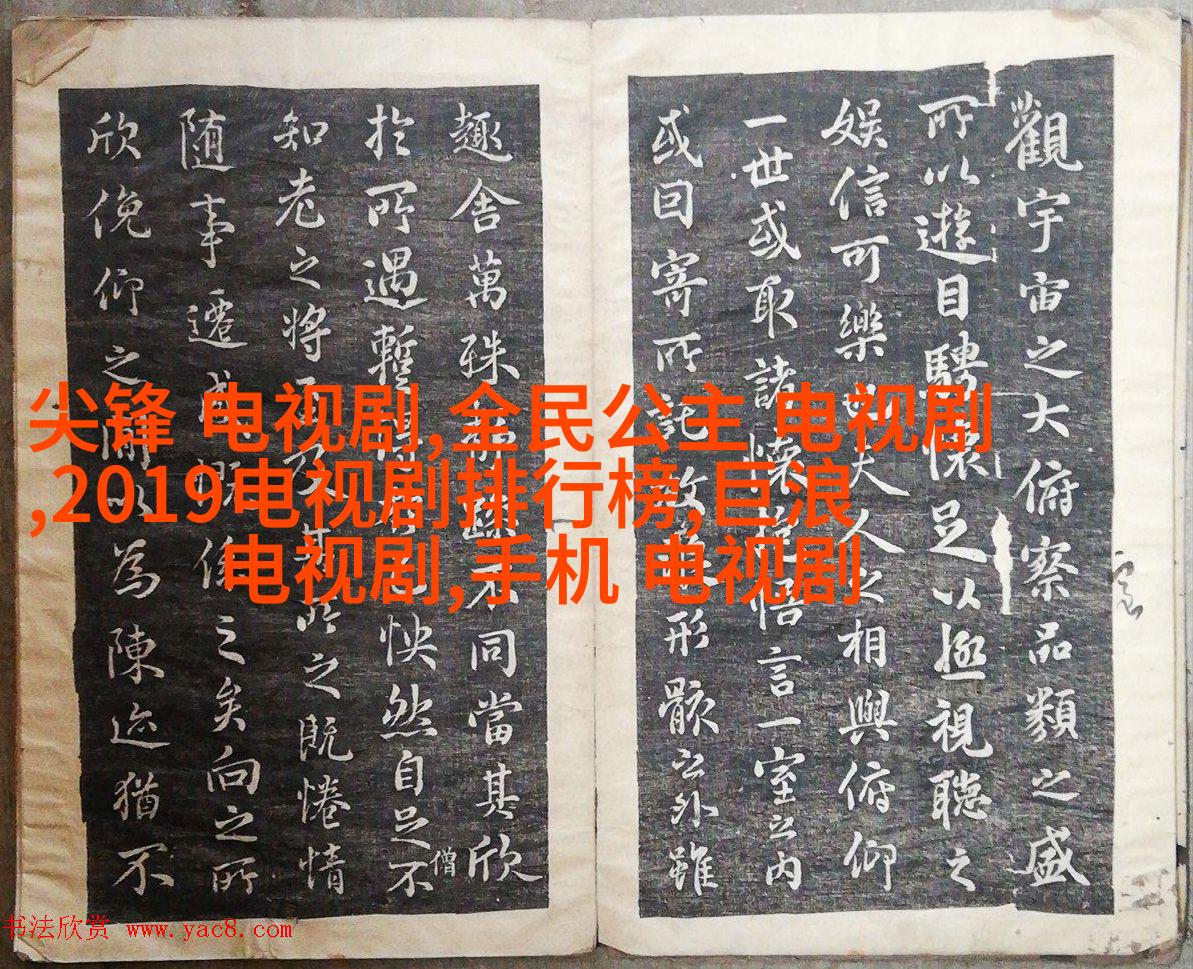 觀宇宙之大俯察品類之盛
所以遊目騁懷足以極視聽之
娛信可樂也夫人之相與俯仰
一世或取諸懷抱悟言一室之内
或因寄所託放形骸之外雖
趣舍萬殊躁不同當其欣
於所遇暫得怏然自足不
僧
知老之將至及其所之既惓情
随事遷感慨係之矣向之所
欣俛仰之閒以為陳迹猶不
尖锋 电视剧,全民公主 电视剧
,2019电视剧排行榜,巨浪
电视剧,手机 电视剧
书法欣赏 www.yac8.com